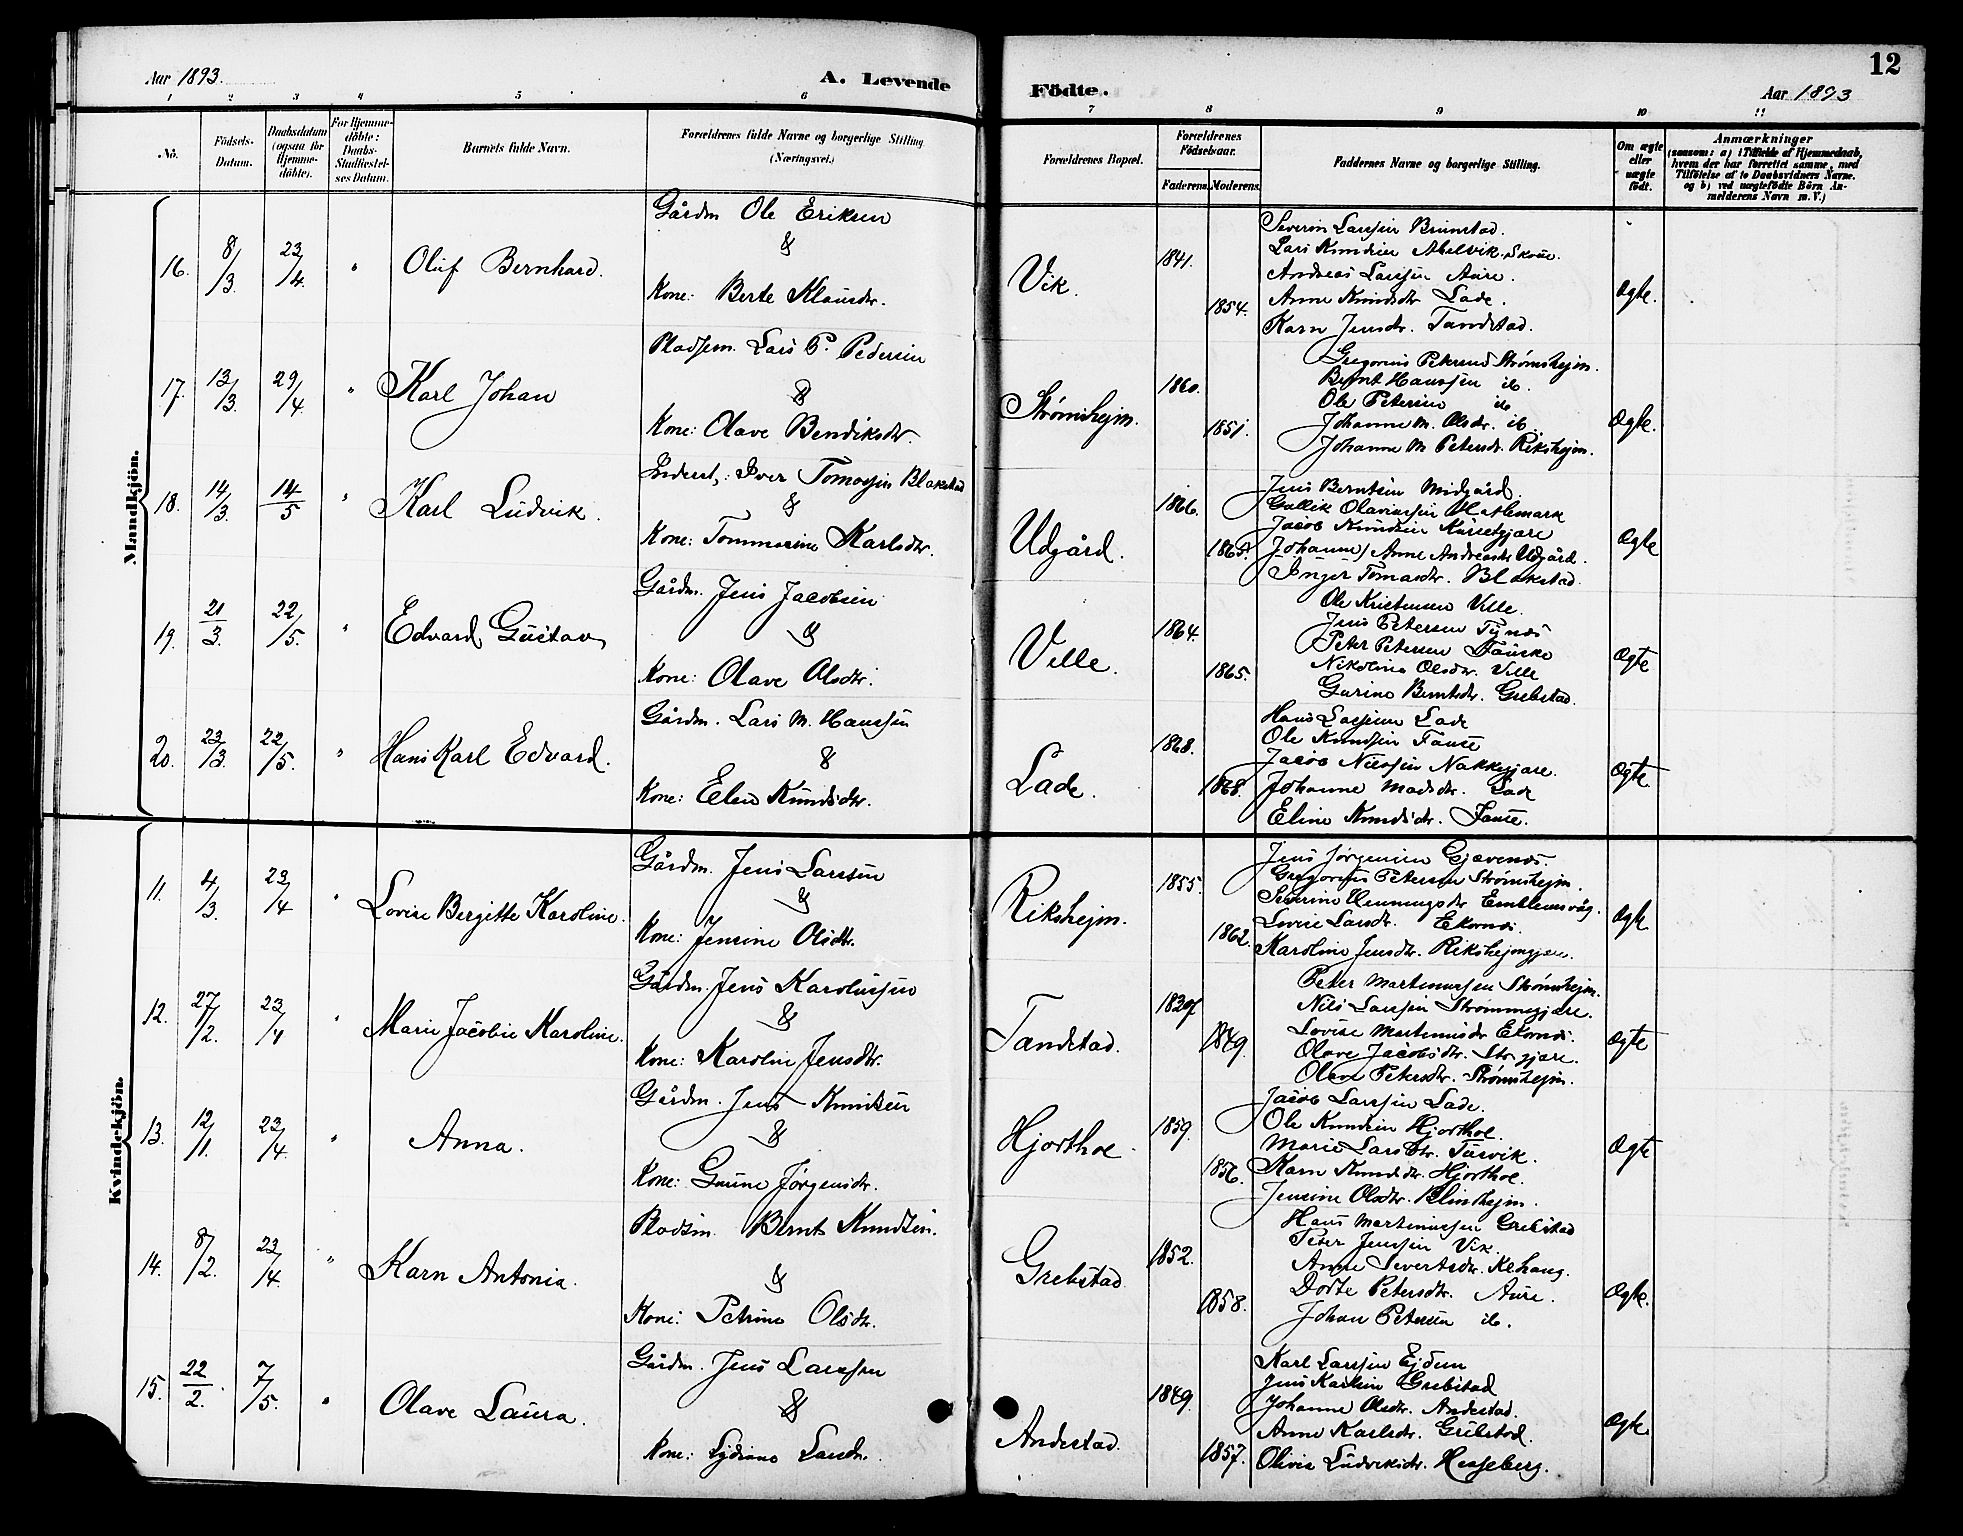 Aar 1893.
A. Levende
Födte.
12
Aar 1893
1 2 3 4 5 6 7 8 9 10 11
No.
Födsels-
Datum.
Daabsdatum
(ogsaa for
Hjemme-
döbte).
For Hjemme-
döbte:
Daabs-
Stadfæstel-
ses Datum.
Barnets fulde Navn.
Forældrenes fulde Navne og borgerlige Stilling
(Næringsvei.)
Forældrenes Bopæl.
Forældrenes
Födselsaar.
Faderens. Moderens.
Faddernes Navne og borgerlige Stilling.
Om ægte
eller
uægte
födt.
Anmærkninger
(saasom: a) i Tilfælde af Hjemmedaab,
hvem der har forrettet samme, med
Tilföielse af to Daabsvidners Navne.
og b) ved uægtefödte Börn An-
melderens Navn m. V.)
Mandkjön.
16. 8/3 23/4 " Oluf Bernhard.
Gårdm Ole Eriksen
&
Kone: Berte Klausdtr.
Vik. 1841. 1854.
Severin Larssen Brunstad.
Lars Knudsen Abelvik. Skoue.
Andreas Larssen Aure.
Anne Knudsdtr Lade.
Karn Jensdtr. Tandstad.
Ægte.
17. 13/3 29/4 " Karl Johan
Pladsem. Lars P. Pedersen
&
Kone: Olave Bendiksdtr.
Strømshejm. 1860. 1851.
Gregorius Petersen Strømshejm.
Bernt Hanssen ib.
Ole Petersen ib
Johanne M. Olsdr. ib.
Johanne M Petersdr. Rikshejm.
Ægte.
18. 14/3 14/5 " Karl Ludvik.
Inderst,: Iver Tomassen Blakstad
&
Kone: Tommasine Karlsdtr.
Udgård. 1866. 1865.
Jens Berntsen Midgård.
Gullik Olaviussen Hatlemark
Jacob Knudsen
Johanne / Anne Andreasdtr Udgård.
Inger Tomasdtr. Blakstad.
Ægte
19. 21/3 22/5. " Edvard Gustav
Gårdm. Jens Jacobsen
&
Kone: Olave Olsdtr.
Velle. 1864. 1865.
Ole Kristensen Velle.
Jens Petersen Tynes
Peter Petersen Fauske
Nikoline Olsdtr. Velle
Gurine Berntsdtr. Grebstad.
Ægte
20. 23/3. 22/5. " Hans Karl Edvard.
Gårdm. Lars M. Hanssen
&
Kone: Elen Knudsdtr.
Lade. 1868. 1868.
Hans Lassen Lade
Ole Knudsen Fause
Jacob Nilssen Nakkegjære.
Johanne Madsdtr. Lade
Eline Knudsdtr. Fause.
Ægte
Kvindekjön.
11. 4/3. 23/4 " Lovise Bergitte Karoline.
Gårdm. Jens Larsen
&
Kone: Jensine Olsdtr.
Rikshejm. 1855. 1862.
Jens Jørgensen Gjævenes.
Gregorius Petersen Strømshejm.
Severine Henningsdtr Emblemsvåg.
Lovise Larsdtr. Ekornes.
Karoline Jensdtr. Rikshejmgjære.
Ægte
12. 27/2. 23/4 " Marie Jacobie Karoline.
Gårdm. Jens Karolussen
&
Kone: Karolin Jensdtr.
Tandstad. 1849.
Peter Martinussen Strømshejm.
Nils Larssen Strømmegjære.
Lovise Martinusdr Ekornes.
Olave Jacobsdtr. Str. gjære.
Olave Petersdtr. Strømshejm.
Ægte
13. 12/1. 23/4. " Anna.
Gårdm. Jens Knudsen
&
Kone: Gurine Jørgensdtr.
Hjorthoe. 1859. 1856.
Jacob Larssen Lade.
Ole Knudsen Hjorthoe.
Marie Larsdtr. Tusvik.
Karn Knudsdtr. Hjorthoe.
Jensine Olsdtr. Blindhejm.
Ægte
14. 8/2. 23/4. " Karn Antonia.
Pladsm. Bernt Knudsen.
&
Kone: Petrine Olsdtr.
Grebstad. 1852. 1858.
Hans Martinussen Grebstad
Peter Jenssen Vik.
Anne Sivertsdtr. Klhaug.
Dorte Petersdtr. Aure.
Johan Petersen ib.
Ægte.
15. 22/2. 7/5. " Olave Laura.
Gårdm. Jens Larssen
&
Kone: Lydiane Larsdtr.
Andestad. 1849. 1857.
Karl Larssen Ejdem
Jens Karlsen Grebstad
Johanne Olsdtr. Andestad.
Anne Karlsdtr. Grebstad.
Olivia Ludviksdtr. Hesseberg.
Ægte